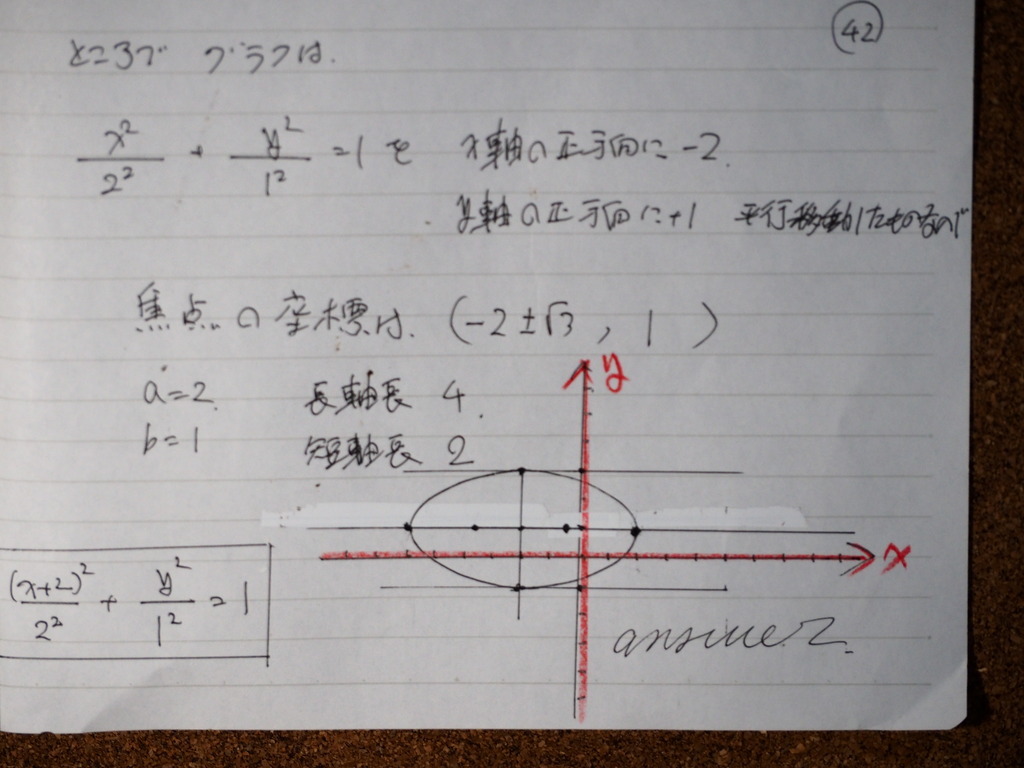 42
ところで グラフは.
x²/2² + y²/1² = 1 を x軸の正方向に -2.
y軸の正方向に +1 平行移動したものなので
焦点の座標は. (-2±√3, 1)
a=2. 長軸長 4.
b=1 短軸長 2
y
x
(x+2)²/2² + y²/1² = 1
answer.